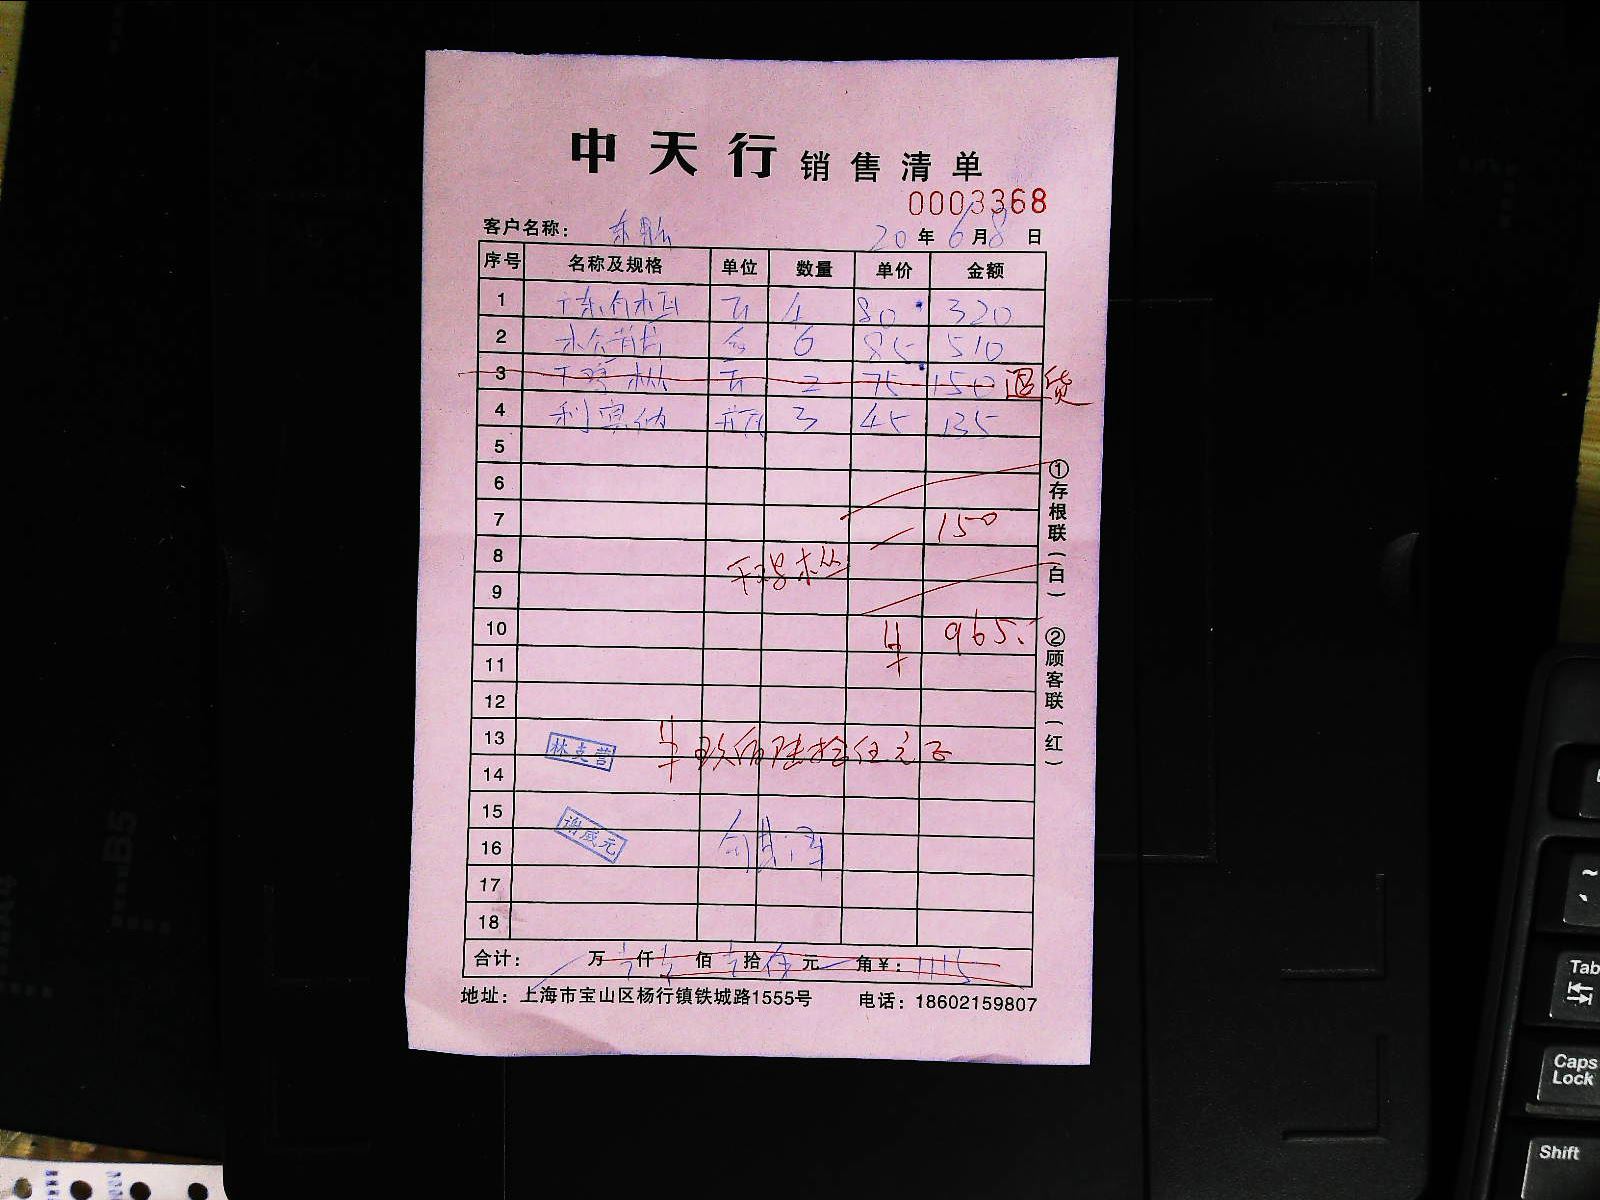 中天行 销售清单
0003368
客户名称：
20 年 6 月 8 日
序号 名称及规格 单位 数量 单价 金额
1 4 80 320
2 6 85 510
3 2 75 150 退货
4 3 45 135
5
6
7 150
8
9
10 ¥ 965.-
11
12
13 林支营 ¥ 玖佰陆拾伍元正
14
15 谢盛元
16
17
18
合计： 万 壹 仟 壹 佰 壹 拾 伍 元 角 ¥：1115
地址：上海市宝山区杨行镇铁城路1555号 电话：18602159807
①存根联（白） ②顾客联（红）
B5
A4
~
Tab
Caps Lock
Shift